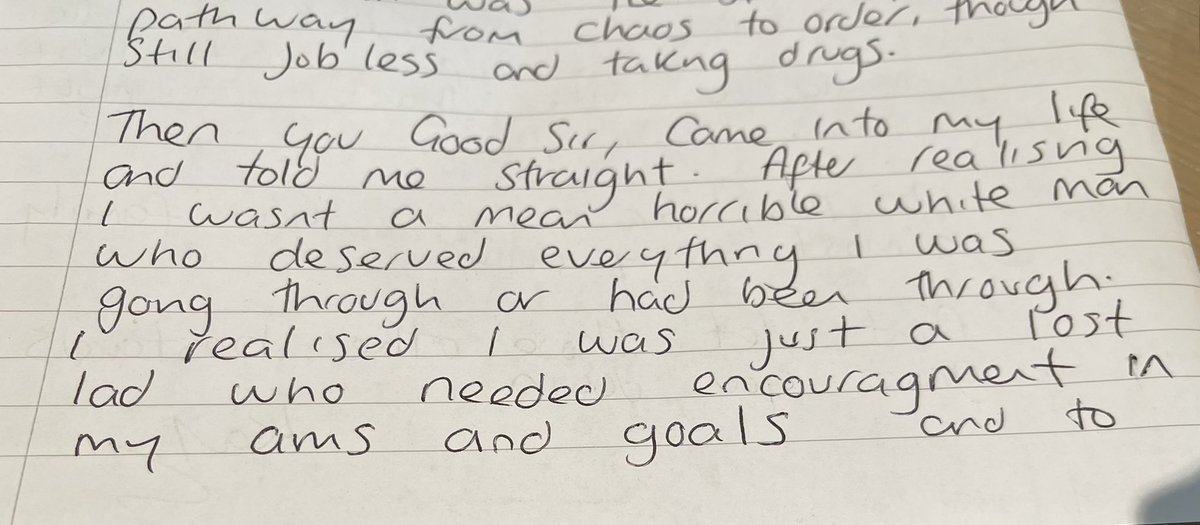 was
pathway from chaos to order, though
Still Jobless and takng drugs.
Then you Good Sir, Came into my life
and told me straight. After realisng
I wasnt a mean horrible white man
who deserved everythng I was
gong through or had been through.
I realised I was just a lost
lad who needed encouragment in
my ams and goals and to